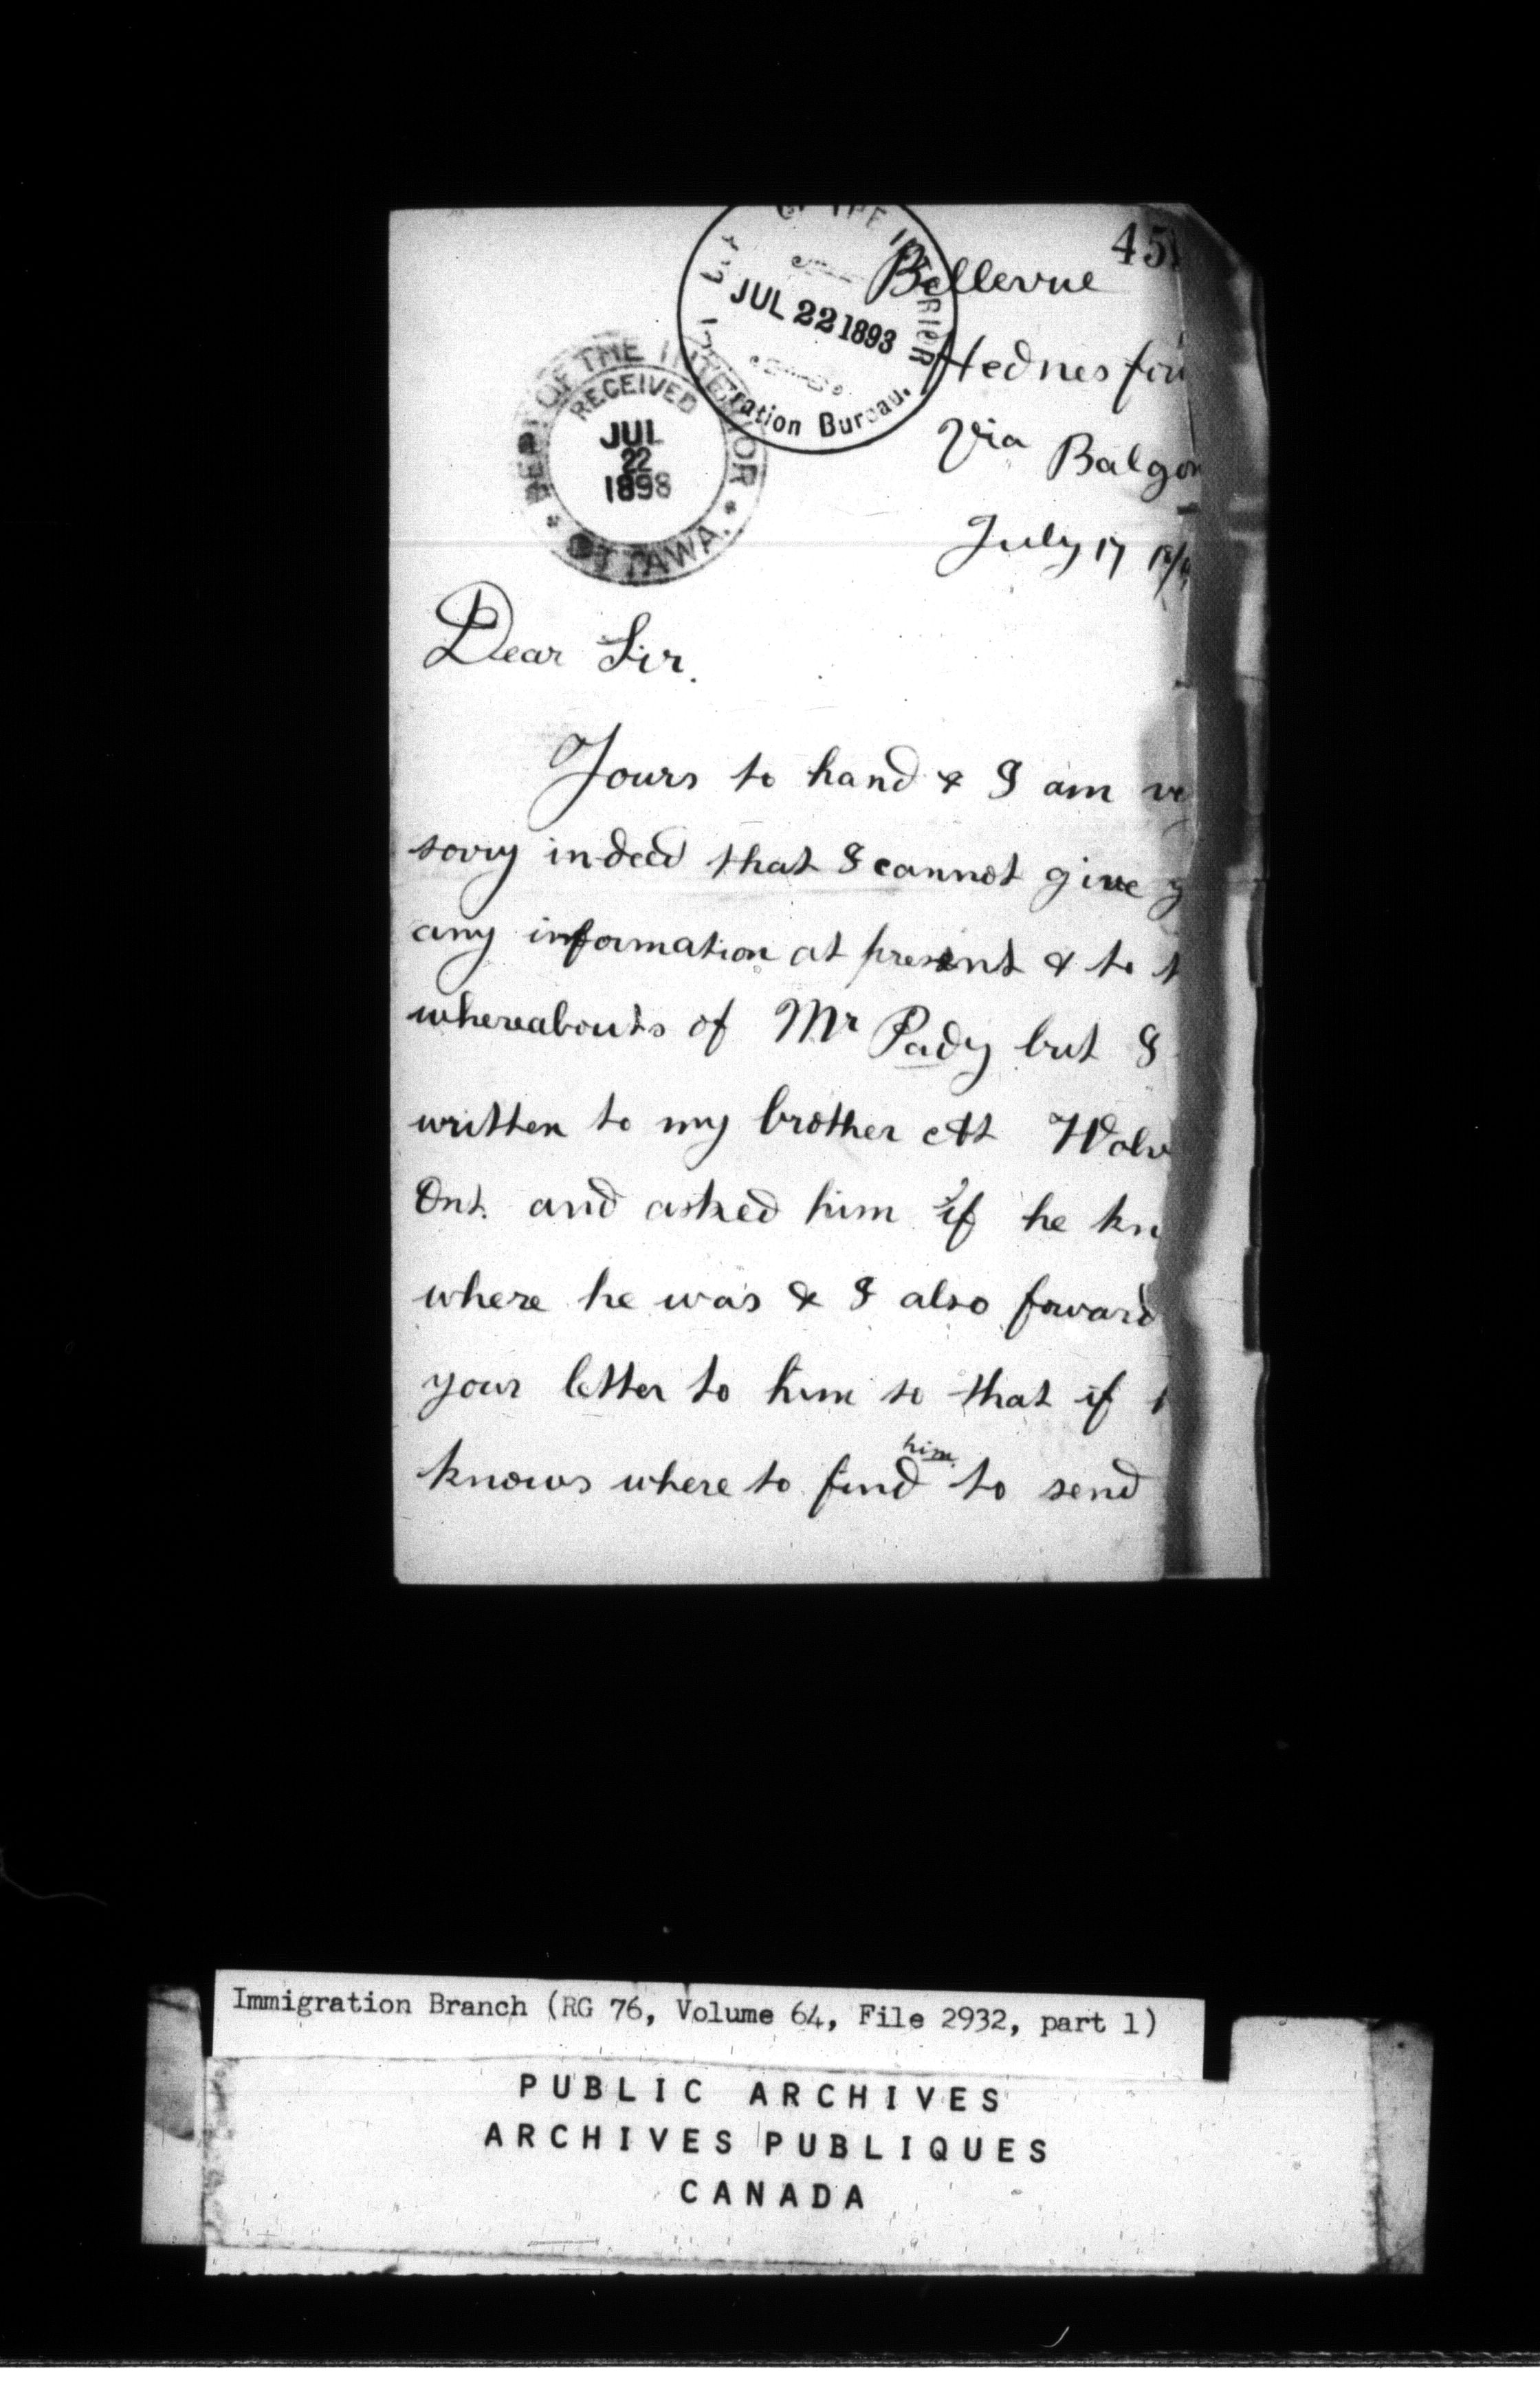 451
THE INTERIOR
JUL 22 1893
ration Bureau.
DEPT OF THE INTERIOR
RECEIVED
JUL
22
1898
OTTAWA.
Bellevue
Hednesfor
Via Balgon
July 17
Dear Sir.
Yours to hand & I am ve
sorry indeed that I cannot give y
any information at present & to t
whereabouts of Mr Pady but I
written to my brother At Wolv
Ont. and asked him if he kn
where he was & I also foward
your letter to him so that if
knows where to find him to send
Immigration Branch (RG 76, Volume 64, File 2932, part 1)
PUBLIC ARCHIVES
ARCHIVES PUBLIQUES
CANADA